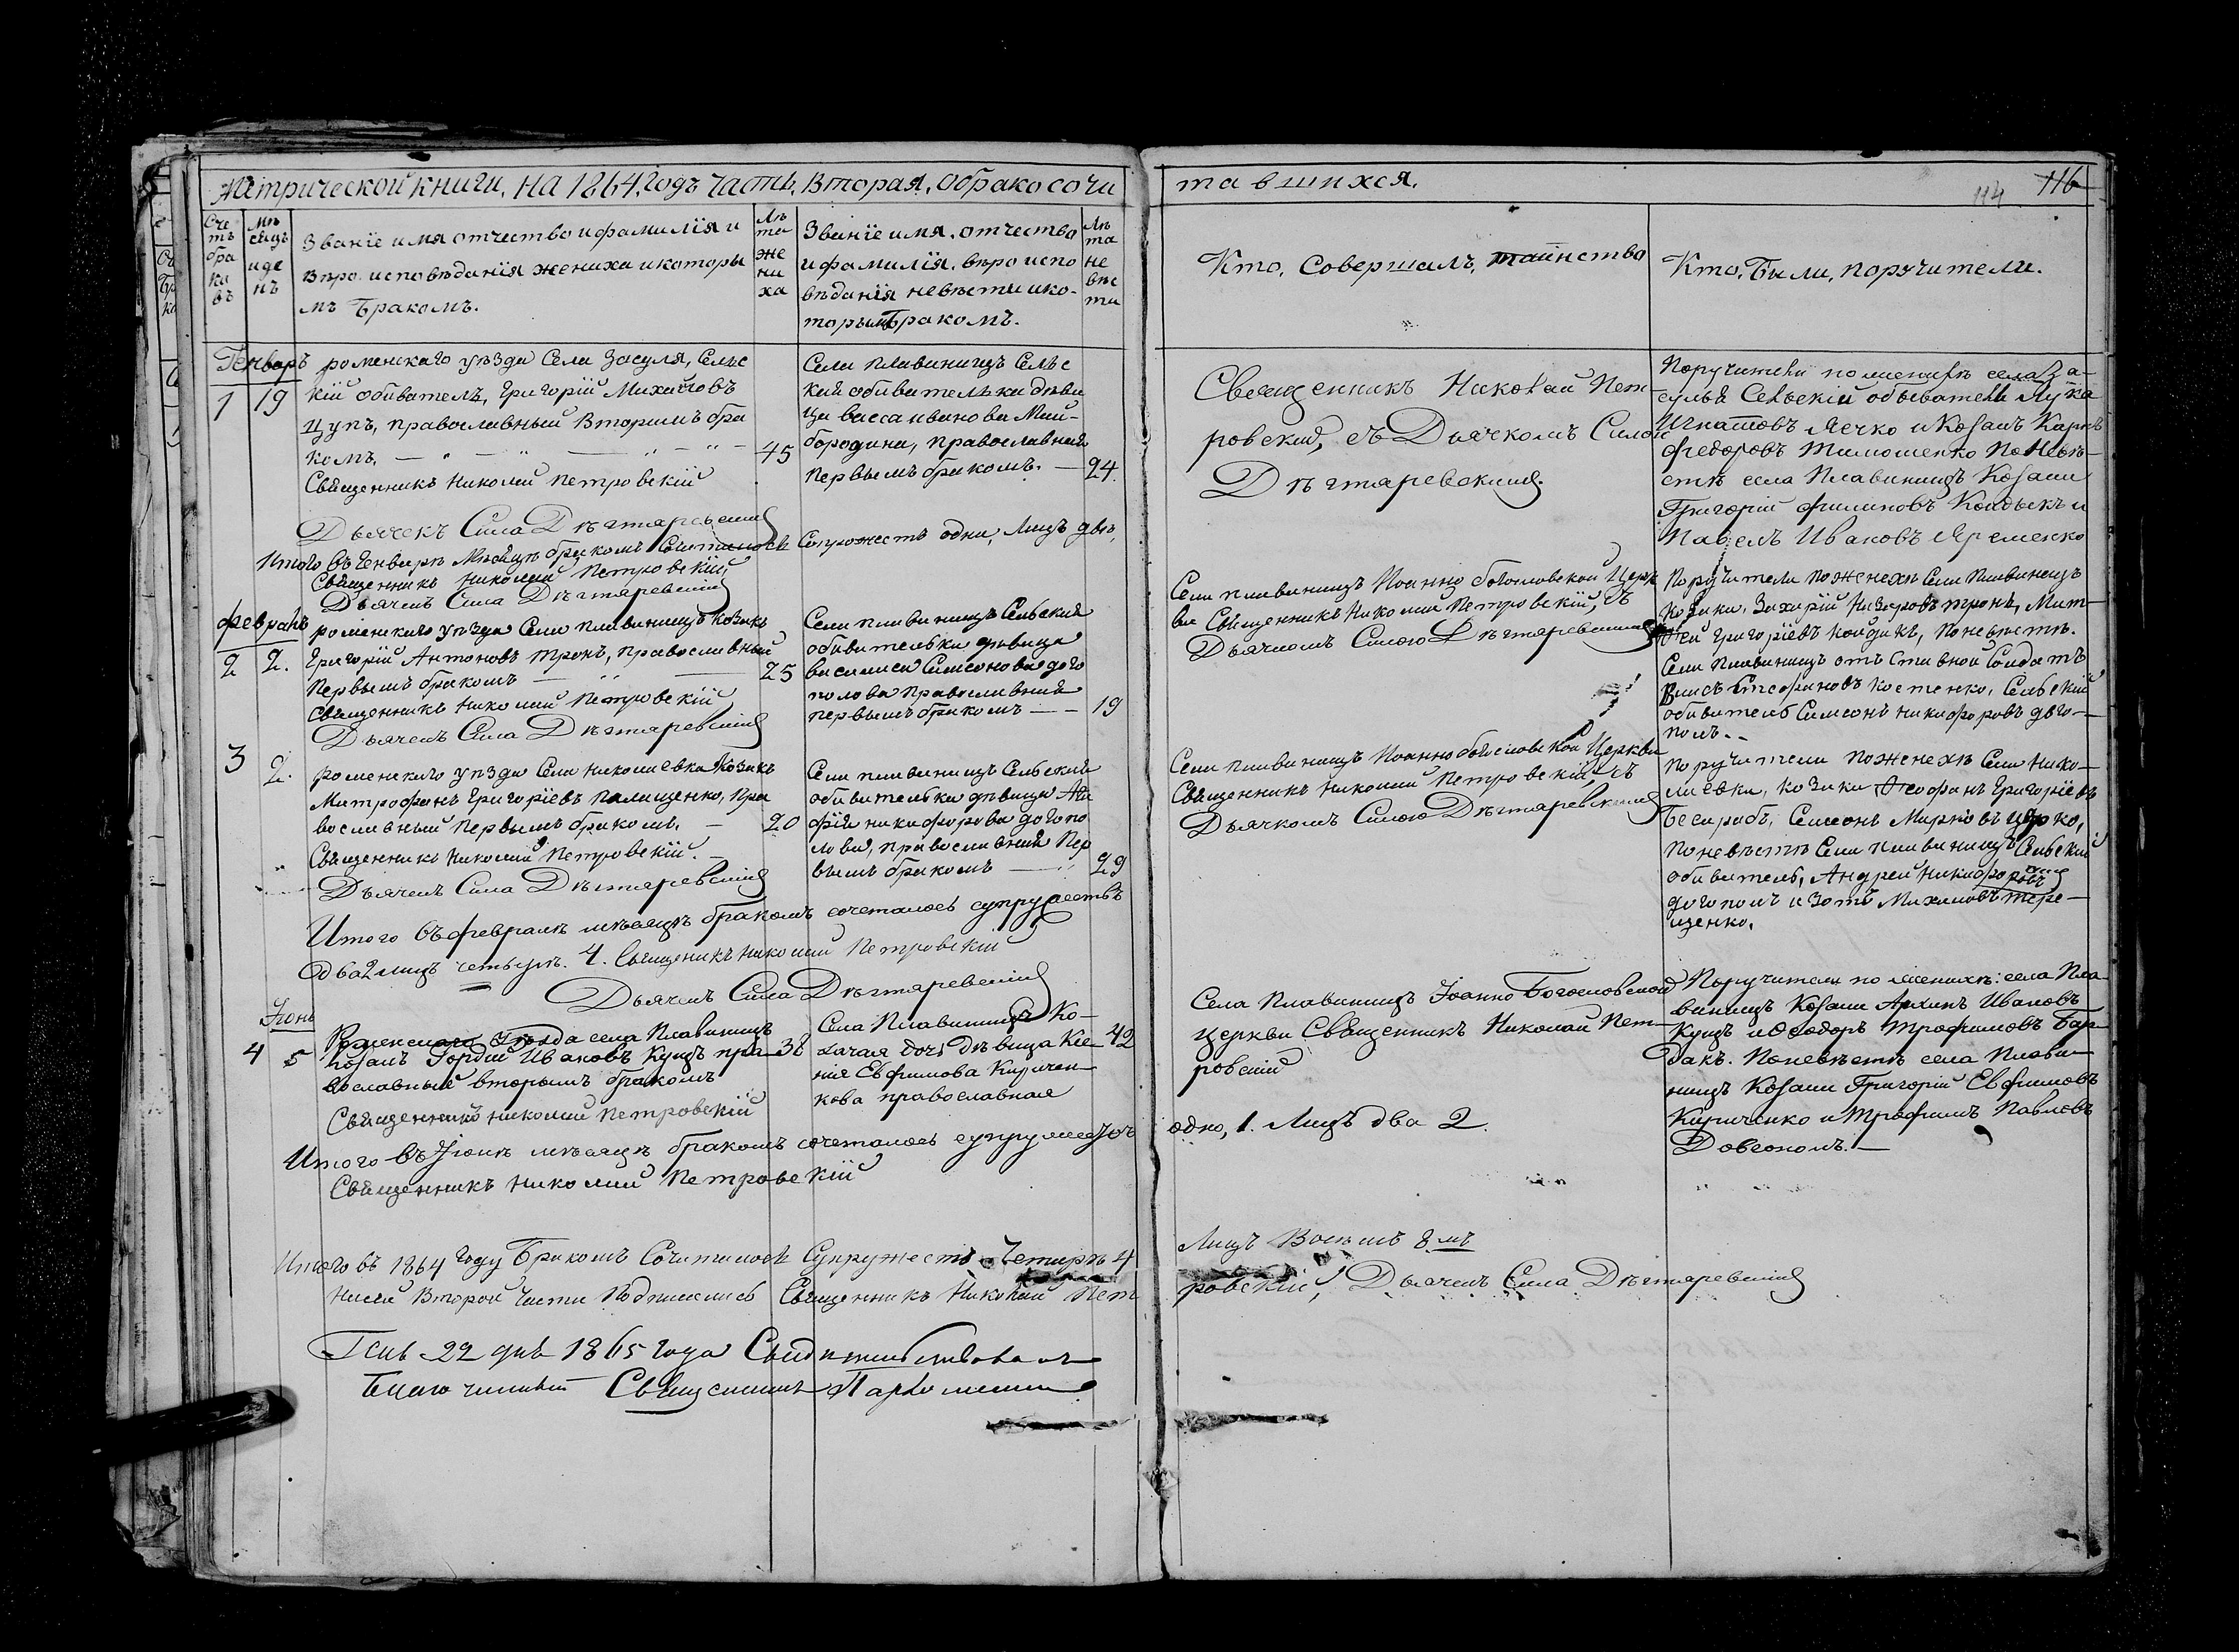 Метрической книги, на 1864, годъ Часть, Вторая, о бракосочи
тавшихся.
114 116
Сче
тъ
бра
ко
въ
Мѣ
сяцъ
и де
нъ
Званіе имя отчество и фамилія и
вѣро исповѣданія жениха и которы
мъ Бракомъ.
Лѣ
та
же
ни
ха
Званіе имя, отчество
и фамилія, вѣро испо
вѣданія невѣсти ико-
торымъ Бракомъ.
Лѣ
та
не
вѣс
ти
Кто, Совершалъ, таинство
Кто, Были, поручители.
Генварь
1 19
роменскаго уѣзда Села Засуля, Сельс
кій обиватель, Григорій Михайловъ
Цупъ, православный Вторимъ бра
комъ. 45
Священникъ Николай Петровскій
Дьячекъ Сила Дѣгтяревскій
Села Плавинищъ Сельс
кая обивателька дѣви
ца Васса Иванова Май-
бородина, православная
Первымъ бракомъ. — 24.
Священникъ Николай Пет-
ровский, съ Дьячкомъ Силою
Дѣгтяревскимъ.
Поручители по женихѣ села За-
сулья Сельскій обыватель Лука
Игнатовъ Лечко и Козакъ Карпъ
Федоровъ Тимошенко По Невѣ-
стѣ села Плавинищъ Козаки
Григорій Филиповъ Койдыкъ и
Павелъ Ивановъ Яременко
Итого въ Генварѣ Мѣсяцѣ бракомъ Сочиталось Супружествъ одни, Лицъ двѣ,
Священникъ Николай Петровскій
Дьячекъ Сила Дѣгтяревскій
Февраль
2 2.
роменскаго уѣзда Села Плавинищъ Козакъ
Григорій Антоновъ Тронь, православный
Первымъ бракомъ — 25
Священникъ Николай Петровскій
Дьячекъ Сила Дѣгтяревскій
Села Плавинищъ Сельская
обивателька дѣвица
Василиса Симеонова Дого
полова Православная
первымъ бракомъ — 19
Села Плавинищъ Иоанно Богословской Церк
ви Священникъ Николай Петровскій, съ
Дьячкомъ Силою Дѣгтяревскимъ
Поручители по женихѣ Села Плавинищъ
Козаки, Захарій Назаровъ Тронь, Мат-
ѳей Григоріевъ Койдикъ, по невѣстѣ.
Села Плавинищъ отъ Ставной Солдатъ
Власъ Стефановъ Костенко, Сельскій
обиватель Симеонъ Никифоровъ Дого-
полъ.
3 2.
роменскаго уѣзда Села Николаевка Козакъ
Митрофанъ Григоріевъ Палащенко, Пра
вославный Первымъ бракомъ. — 20
Священникъ Николай Петровскій.
Дьячекъ Сила Дѣгтяревскій
Села Плавинищъ Сельская
обивателька дѣвица Ага
фія Никифорова Догопо
лова, православная Пер
вымъ бракомъ — 29
Села Плавинищъ Иоанно Богословской Церкви
Священникъ Николай Петровскій, съ
Дьячкомъ Силою Дѣгтяревскимъ
Поручители по женехѣ Села Нико-
лаевки, Козаки Ѳеофанъ Григоріевъ
Бесарабъ, Симеонъ Марковъ
по невѣстѣ Села Плавинищъ Сельскій
обиватель, Андрей Никифоровъ
Догополъ и Зотъ Михаиловъ Тере-
щенко.
Итого въ Февралѣ мѣсяцѣ бракомъ сочеталось супружествъ
два 2 лицъ четыре. 4. Священникъ Николай Петровскій
Дьячекъ Сила Дѣгтяревскій
Іюнь
4 5
Роменскаго Уѣзда села Плавинищъ
Козакъ Гордій Ивановъ Куцъ пра- 38
вославный вторымъ бракомъ
Священникъ Николай Петровскій
Села Плавинищъ Ко-
зачая дочь дѣвица Ксе- 42
нія Евфимова Киричен-
кова православная
Села Плавинищъ Іоанно Богословской
Церкви Священникъ Николай Пет-
ровскій
Поручители по женихѣ: села Пла-
винищъ Козаки Архипъ Ивановъ
Куцъ и Ѳеодоръ Трофимовъ Бар-
дакъ. По невѣстѣ села Плави-
нищъ Козаки Григорій Евфимовъ
Кириченко и Трофимъ Павловъ
Довгополъ. —
Итого въ Іюнѣ мѣсяцѣ бракомъ сочеталось супружествъ одно, 1. Лицъ два 2.
Священникъ Николай Петровскій
Итого въ 1864 году Бракомъ Сочиталось Супружествъ Четыре 4 Лицъ Восемъ 8 мъ
Къ сей Второй Части Подписались Священникъ Николай Петровскій, Дьячекъ Сила Дѣгтяревскій
Генв. 22 дня 1865 года Свидѣтельствовалъ
Благочинный Священникъ Пархоменко